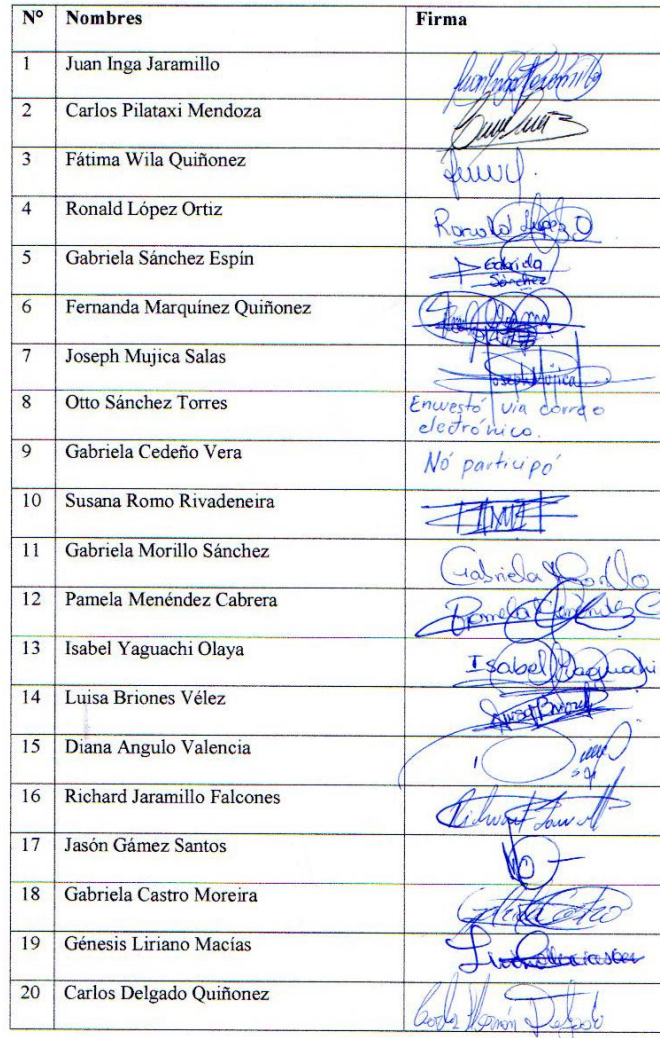 N° Nombres Firma
1 Juan Inga Jaramillo Juan Inga Jaramillo
2 Carlos Pilataxi Mendoza
3 Fátima Wila Quiñonez
4 Ronald López Ortiz Ronald López O
5 Gabriela Sánchez Espín Gabriela
Sánchez
6 Fernanda Marquínez Quiñonez
7 Joseph Mujica Salas Joseph Mujica
8 Otto Sánchez Torres Envuestó vía correo
electrónico.
9 Gabriela Cedeño Vera Nó participó
10 Susana Romo Rivadeneira
11 Gabriela Morillo Sánchez Gabriela Morillo
12 Pamela Menéndez Cabrera Pamela Menéndez C
13 Isabel Yaguachi Olaya Isabel Yaguachi
14 Luisa Briones Vélez Luisa Briones
15 Diana Angulo Valencia
16 Richard Jaramillo Falcones
17 Jasón Gámez Santos
18 Gabriela Castro Moreira Gabriela Castro
19 Génesis Liriano Macías
20 Carlos Delgado Quiñonez Carlos Hernán Delgado